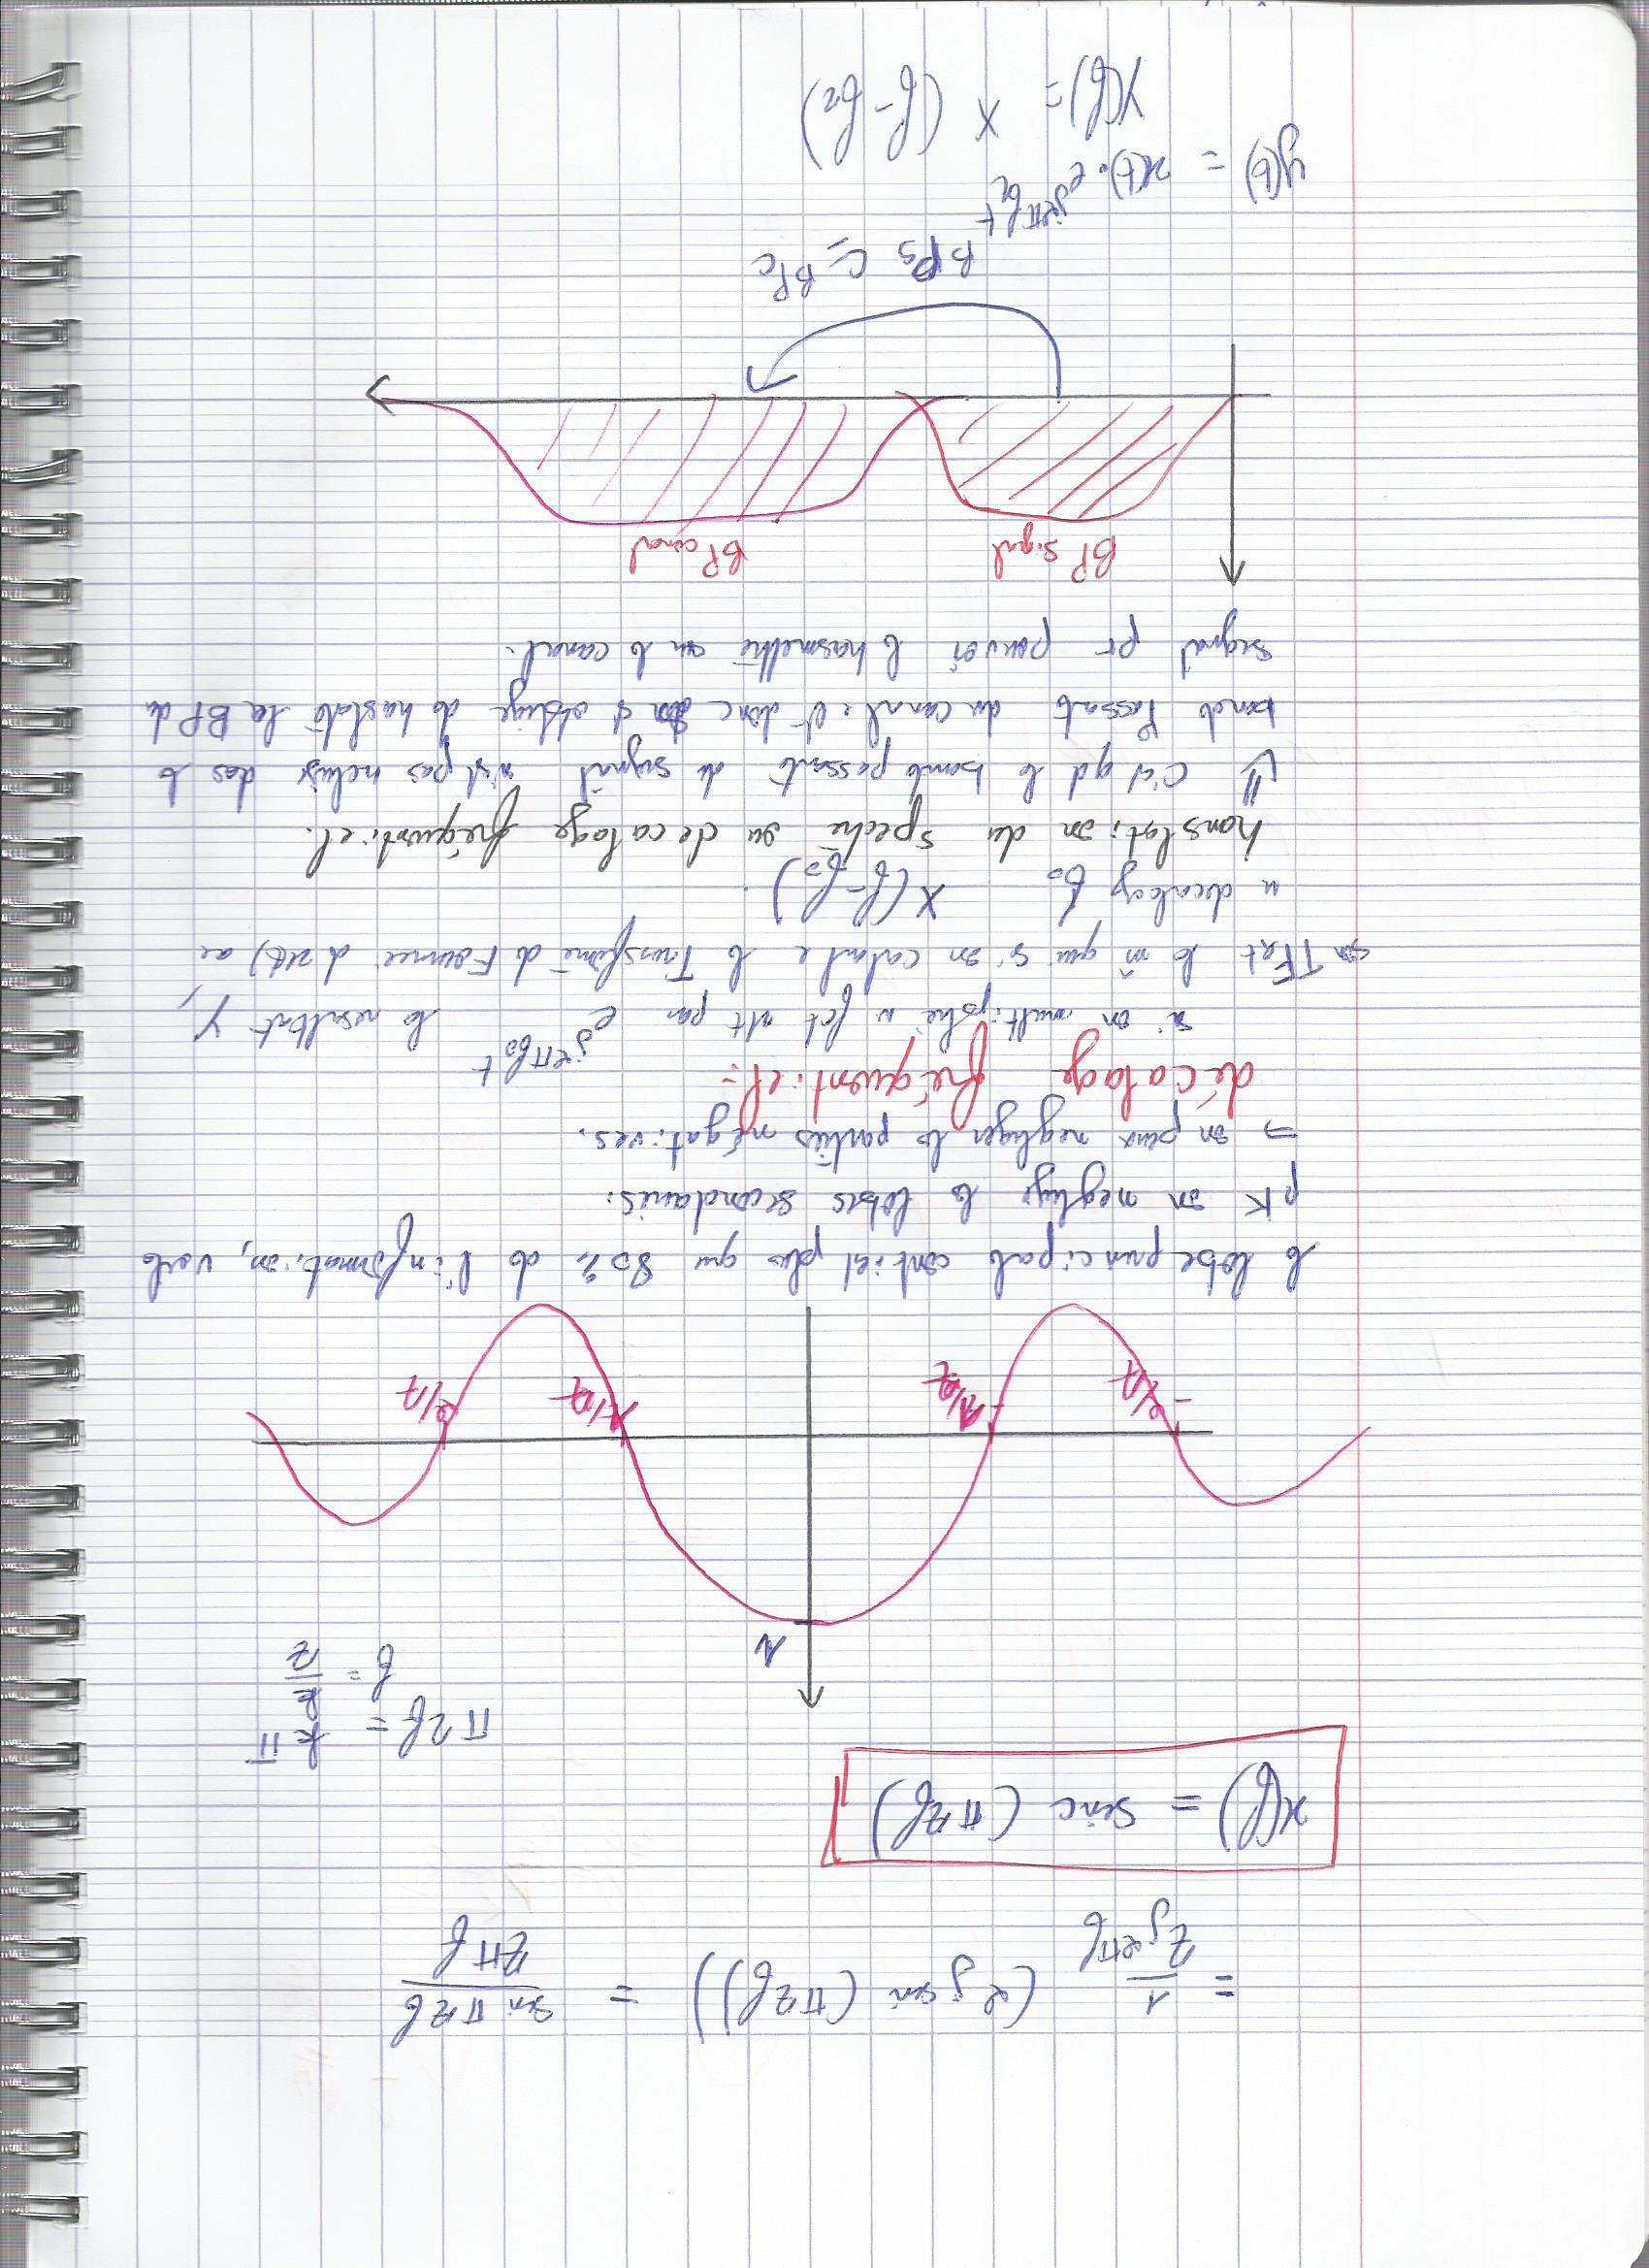 = 1/(zj2πf) (2j sin (πzf)) = sin πzf / zπf
x(f) = sinc (πzf)
πzf = kπ
f = k/z
1
-2/z -1/z 1/z 2/z
le lobe principale contiet plus que 80% de l'information, voila
pk on neglige le lobes secondaires.
⇒ on peux negliger le parties négatives.
décalage fréquentiel :
si on multiplie u fct x(t) par e^{j2πf0t} le resultat Y,
sa TF et le m̂ que si on calcule le Transformé de Fourrier d x(t) ac
u decalage f0 X(f-f0).
translation du spectre ou decalage fréquentiel.
⇓ C'est qd le bande passante du signal n'est pas incluse das le
bande Passante du canal et donc on st oblige de translaté la BP du
signal pr pouvoir le transmettre sur le canal.
BP signal BP canal
BPs ⊂ BPc
y(t) = x(t) . e^{j2πf2t}
Y(f) = X (f-f2)